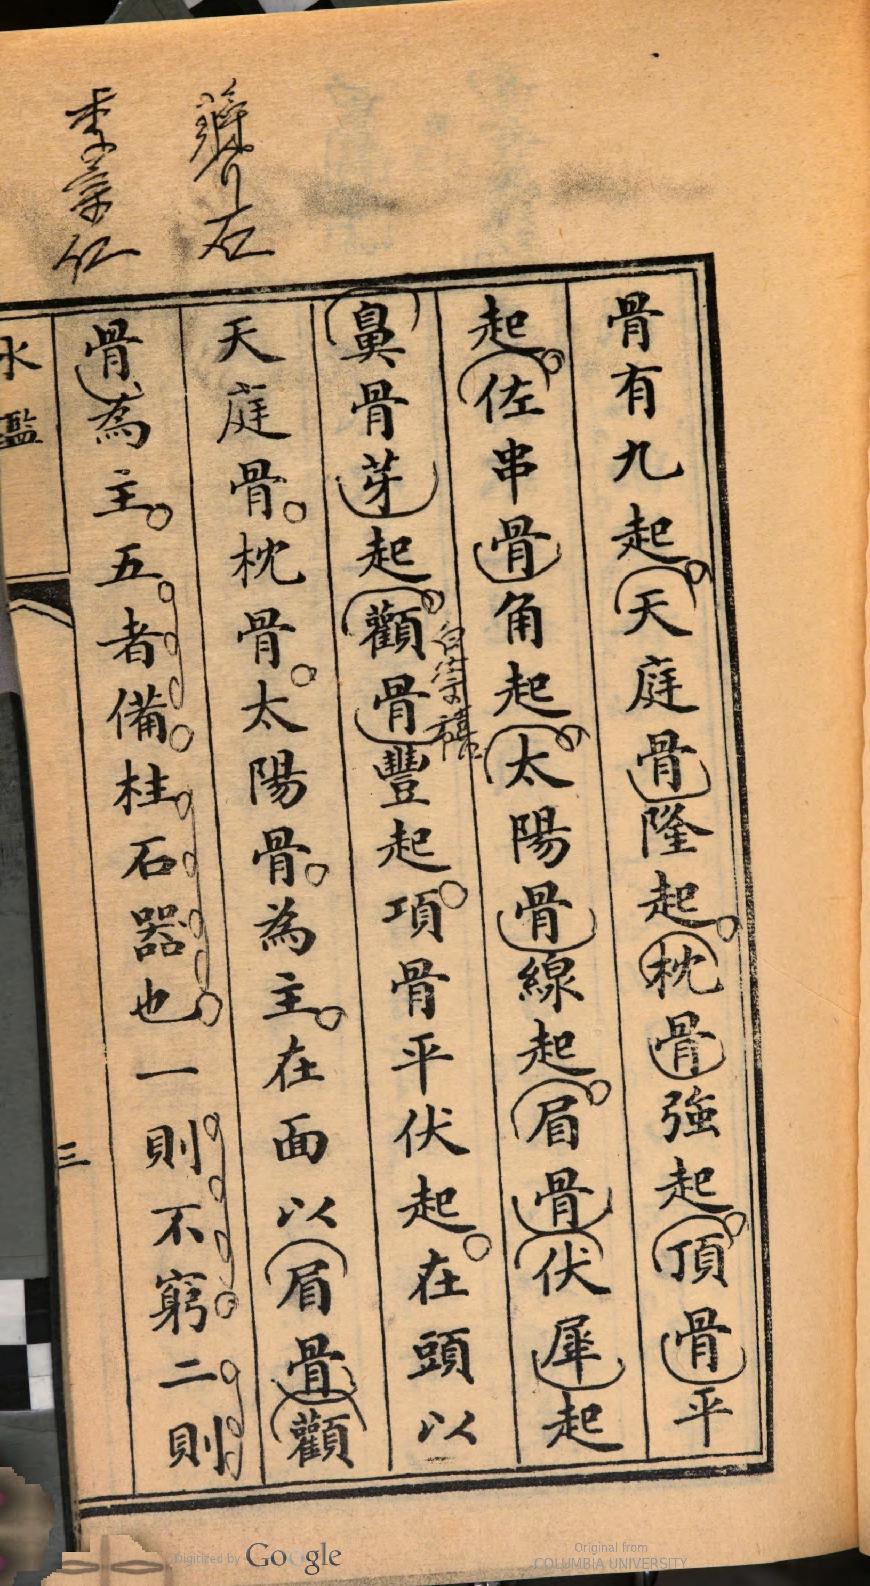 骨有九起天庭骨隆起枕骨強起頂骨平
起佐串骨角起太陽骨線起眉骨伏犀起
鼻骨芽起顴骨豐起項骨平伏起在頭以
天庭骨枕骨太陽骨為主在面以眉骨顴
骨為主五者備柱石器也一則不窮二則
水鑑
三
李宗仁
白崇禧
Digitized by Google
Original from
COLUMBIA UNIVERSITY